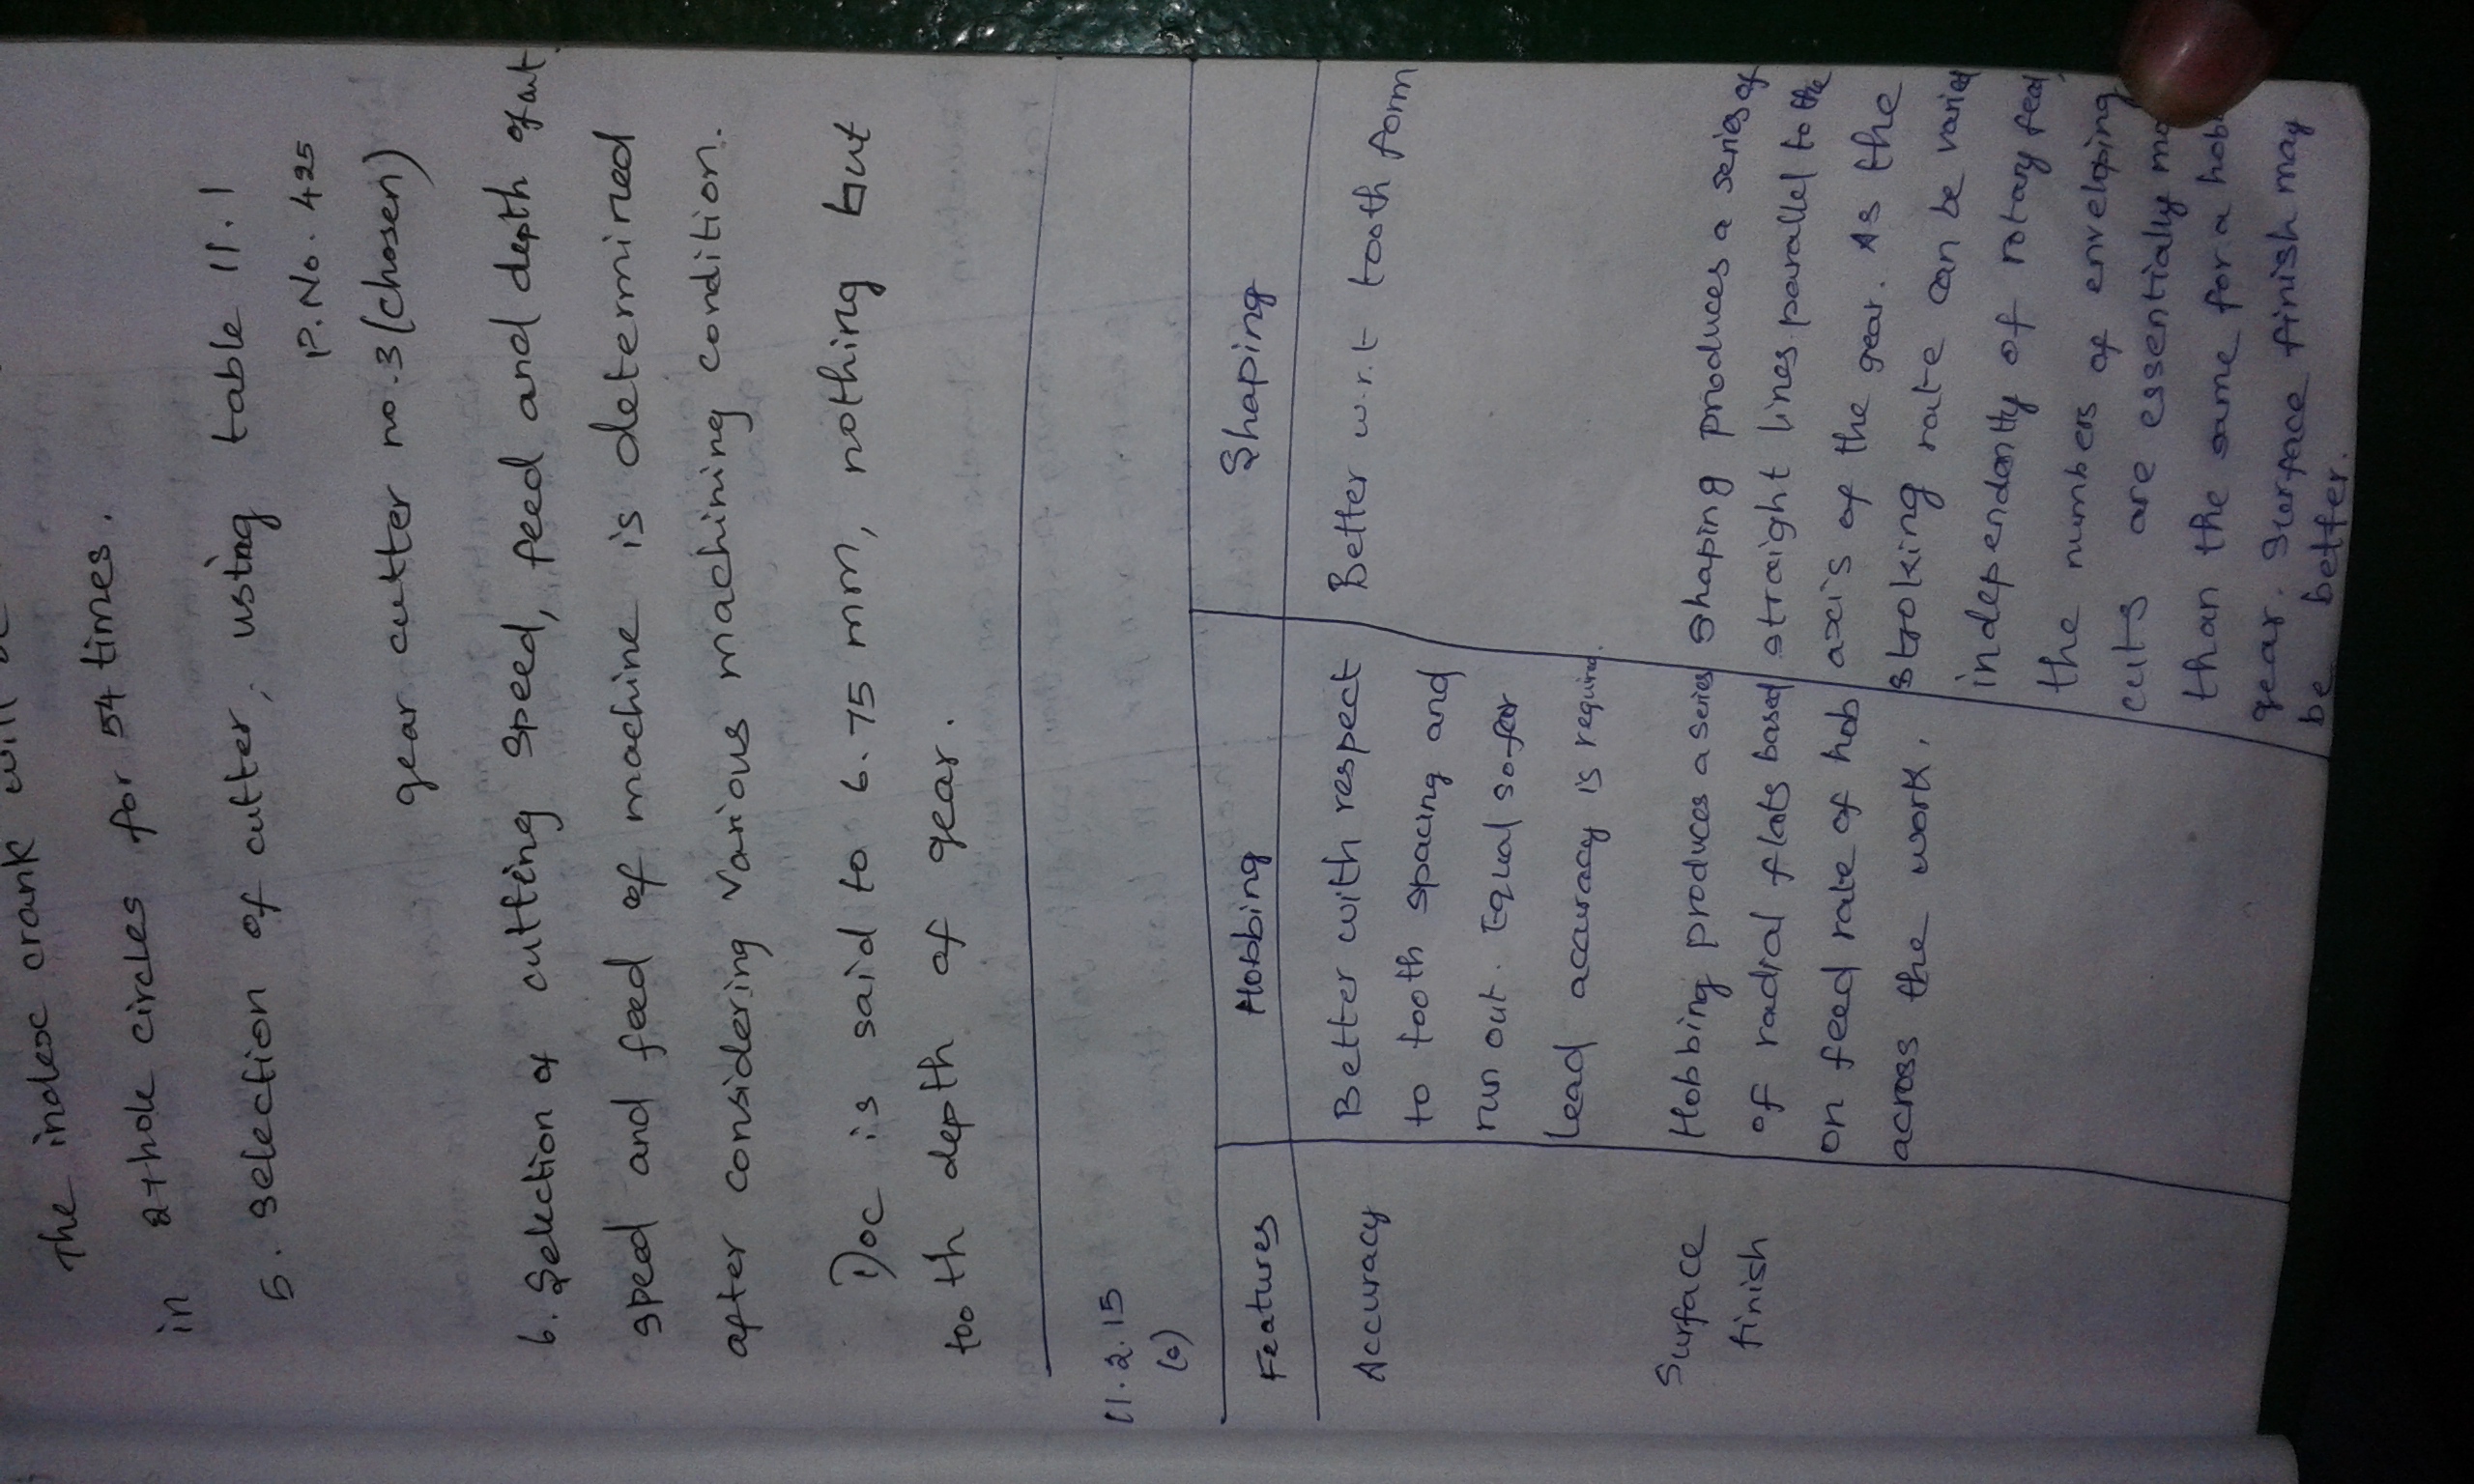 The index crank will
in 27 hole circles for 54 times.
5. Selection of cutter, using table 11.1
P. No. 425
gear cutter no. 3 (chosen)
6. Selection of cutting speed, feed and depth of cut.
speed and feed of machine is determined
after considering various machining condition.
Doc is said to 6.75 mm, nothing but
tooth depth of gear.
11.2.15
Features Hobbing Shaping
Accuracy
Better with respect
to tooth spacing and
run out. Equal so far
lead accuracy is required.
Better w.r.t tooth form
Surface
finish
Hobbing produces a series
of radial flats based
on feed rate of hob
across the work.
Shaping produces a series of
straight lines parallel to the
axis of the gear. As the
stroking rate can be varied
independently of rotary feed,
the numbers of enveloping
cuts are essentially
than the same for a
gear. Surface finish may
be better.